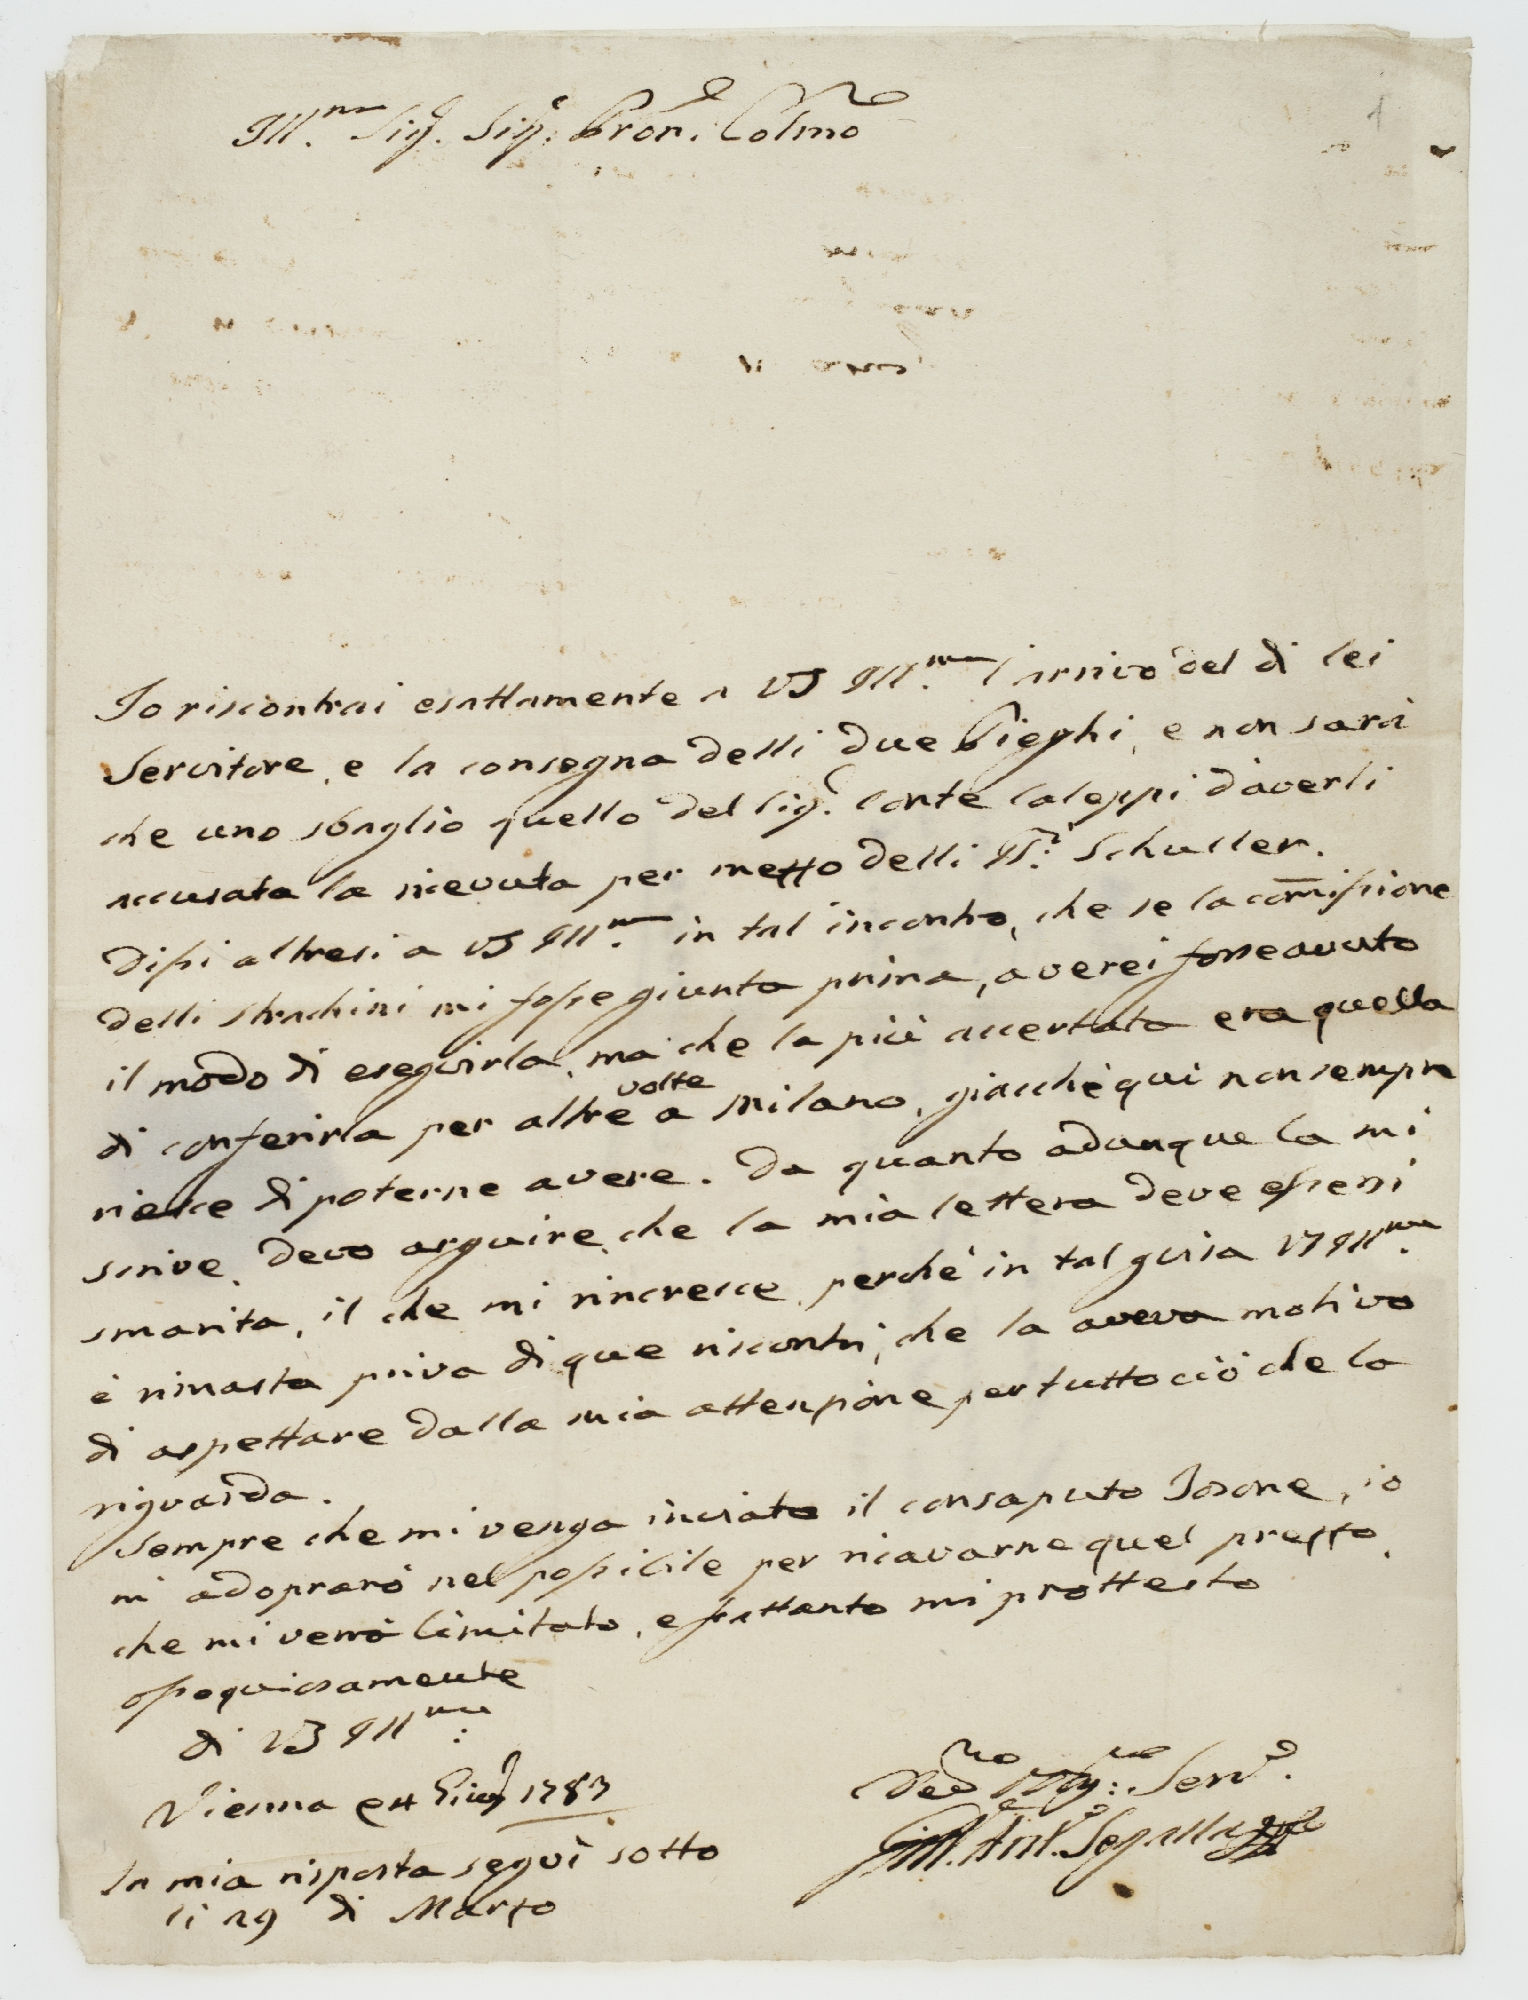 Ill.mo Sig. Sig.e Pron. Colmo
Io riscontrai esattamente a VS Ill.ma l'arrivo del di lei
Servitore, e la consegna delli due Pieghi, e non sarà
che uno sbaglio quello del Sig.r Conte Caleppi d'averli
accusata la ricevuta per mezzo delli SS.ri Schuller.
Dissi altresi a VS Ill.ma in tal incontro, che se la com̄issione
delli strachini mi fosse giunta prima, averei forse avuto
il modo di eseguirla, ma che la più accertata era quella
di conferirla per altre volte a Milano, giacchè qui non sempre
riesce di poterne avere. Da quanto adunque la mi
scrive, devo arguire, che la mia lettera deve essersi
smarita, il che mi rincresce, perchè in tal guisa VS Ill.ma
è rimasta priva di que riscontri, che la aveva motivo
di aspettare dalla mia attenzione per tutto ciò che la
riguarda.
Sempre che mi venga inviato il consaputo Zozone, io
mi adoprarò nel possibile per ricavarne quel prezzo,
che mi verrà limitato, e frattanto mi prottesto
ossequiosamente
di VS Ill.ma
Vienna 24 Giug 1783
Dev.mo Obl.mo Serv.e
Gio. Ant. Segalla
La mia risposta seguì sotto
li 29 di Marzo